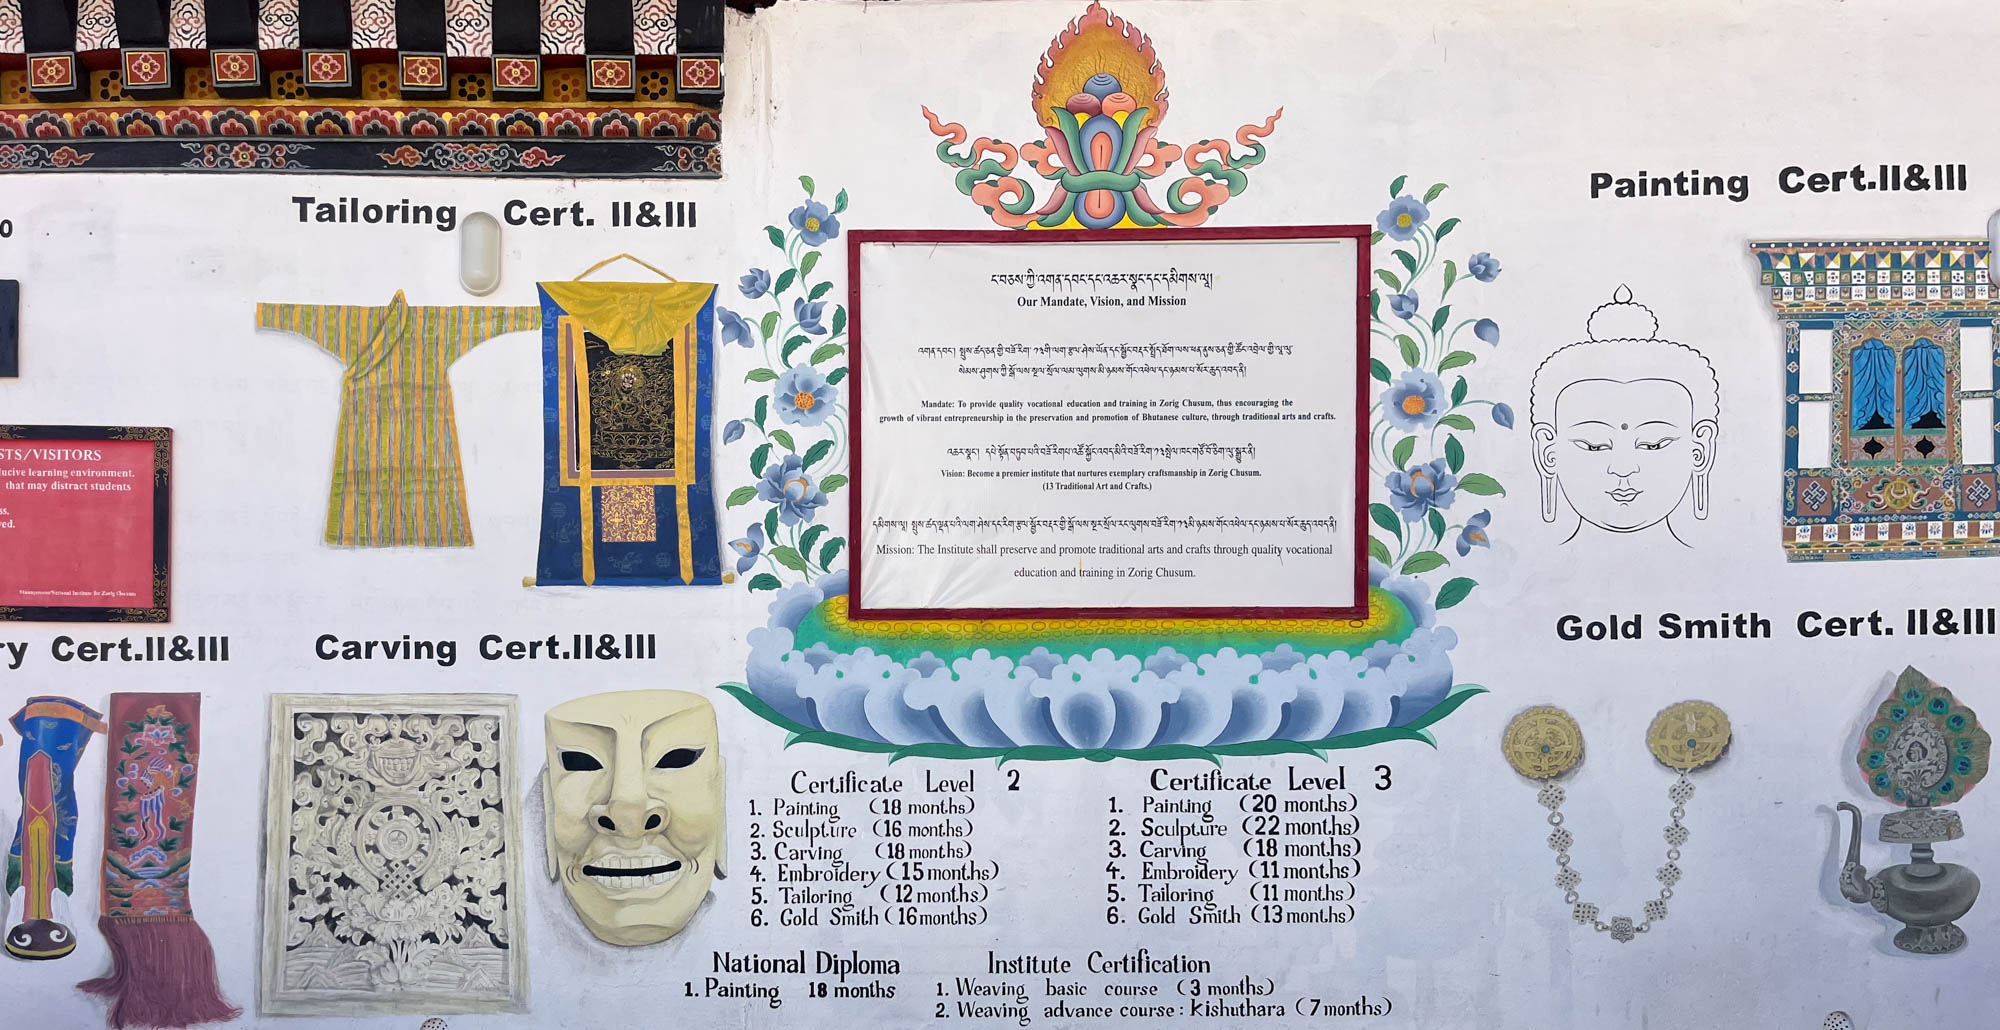 0
Tailoring Cert. II&III
Painting Cert.II&III
ང་བཅས་ཀྱི་འགན་དབང་དང་འཆར་སྣང་དང་དམིགས་ལཱ།
Our Mandate, Vision, and Mission
Mandate: To provide quality vocational education and training in Zorig Chusum, thus encouraging the
growth of vibrant entrepreneurship in the preservation and promotion of Bhutanese culture, through traditional arts and crafts.
Vision: Become a premier institute that nurtures exemplary craftsmanship in Zorig Chusum.
(13 Traditional Art and Crafts.)
Mission: The Institute shall preserve and promote traditional arts and crafts through quality vocational
education and training in Zorig Chusum.
STS/VISITORS
ducive learning environment.
that may distract students
ss.
ved.
Management/National Institute for Zorig Chusum
ry Cert.II&III
Carving Cert.II&III
Gold Smith Cert. II&III
Certificate Level 2
1. Painting (18 months)
2. Sculpture (16 months)
3. Carving (18 months)
4. Embroidery (15 months)
5. Tailoring (12 months)
6. Gold Smith (16 months)
Certificate Level 3
1. Painting (20 months)
2. Sculpture (22 months)
3. Carving (18 months)
4. Embroidery (11 months)
5. Tailoring (11 months)
6. Gold Smith (13 months)
National Diploma
1. Painting 18 months
Institute Certification
1. Weaving basic course (3 months)
2. Weaving advance course: Kishuthara (7 months)